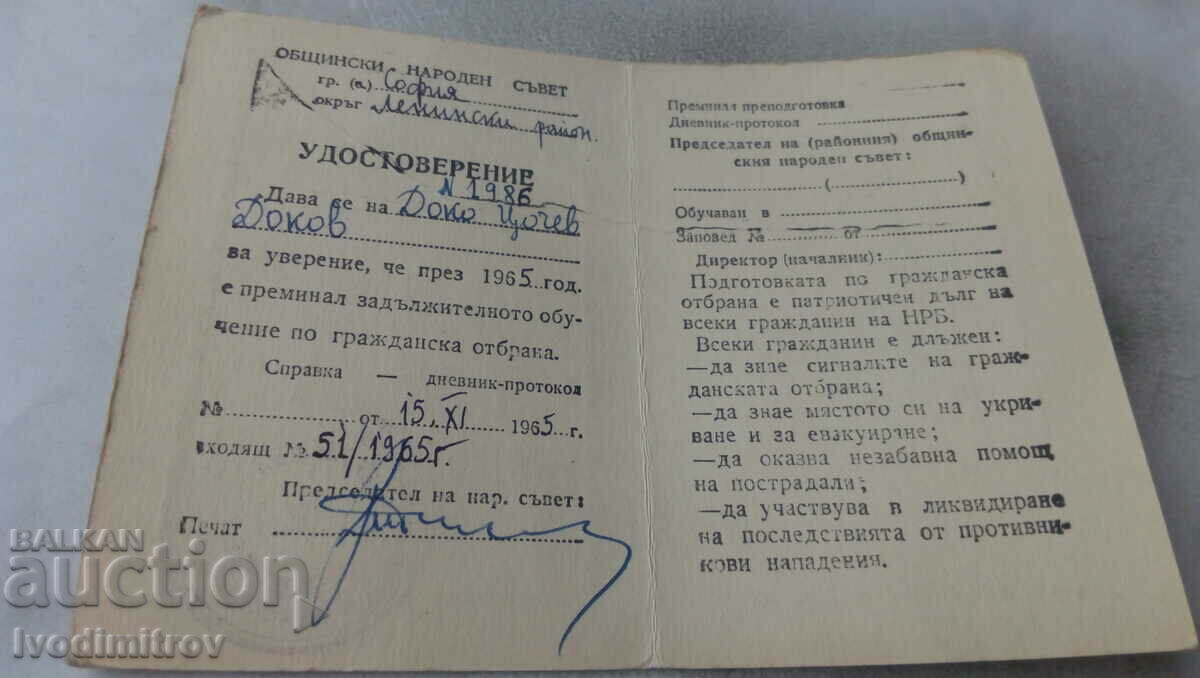 ОБЩИНСКИ НАРОДЕН СЪВЕТ
гр. (с) София
окръг Ленински район.
УДОСТОВЕРЕНИЕ
N 1986
Дава се на Доко Цочев
Доков
ва уверение, че през 1965 год.
е преминал задължителното обу-
чение по гражданска отбрана.
Справка — дневник-протокол
№ от 15.XI 1965 г.
входящ № 51/1965г.
Председател на нар. съвет:
Печат
Преминал преподготовка
Дневник-протокол
Председател на (районния) общин-
ския народен съвет:
( )
Обучаван в
Заповед № от
Директор (началник):
Подготовката по гражданска
отбрана е патриотичен дълг на
всеки гражданин на НРБ.
Всеки гражданин е длъжен:
—да знае сигналите на граж-
данската отбрана;
—да знае мястото си на укри-
ване и за евакуиране;
—да оказва незабавна помощ
на пострадали;
—да участвува в ликвидиране
на последствията от противни-
кови нападения.
BALKAN
auction
Ivodimitrov